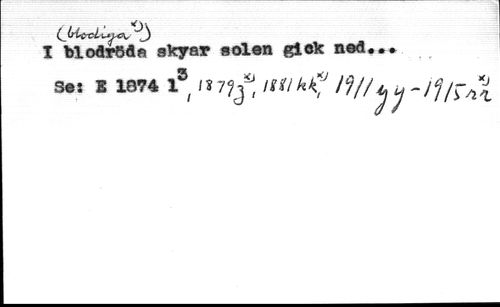 (blodiga x))
I blodröda skyar solen gick ned...
Se: E 1874 1³, 1879z x), 1881kk x), 1911yy-1915rr x)